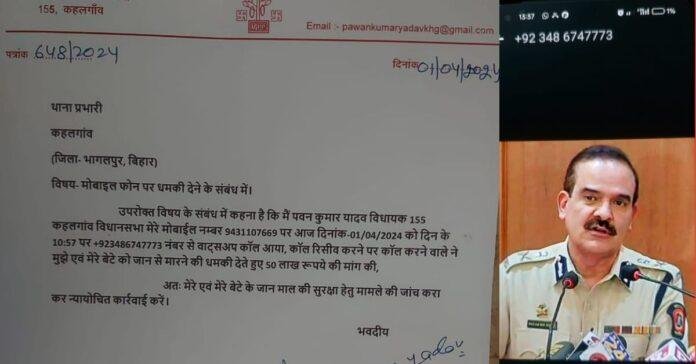 155, कहलगाँव
Email :- pawankumaryadavkhg@gmail.com
पत्रांक 648/2024
दिनांक 01/04/2024
थाना प्रभारी
कहलगांव
(जिला- भागलपुर, बिहार)
विषय- मोबाइल फोन पर धमकी देने के संबंध में।
उपरोक्त विषय के संबंध में कहना है कि मैं पवन कुमार यादव विधायक 155
कहलगांव विधानसभा मेरे मोबाईल नम्बर 9431107669 पर आज दिनांक-01/04/2024 को दिन के
10:57 पर +923486747773 नंबर से वाट्सअप कॉल आया, कॉल रिसीव करने पर कॉल करने वाले ने
मुझे एवं मेरे बेटे को जान से मारने की धमकी देते हुए 50 लाख रूपये की मांग की,
अतः मेरे एवं मेरे बेटे के जान माल की सुरक्षा हेतु मामले की जांच करा
कर न्यायोचित कार्रवाई करें।
भवदीय
Yadav
13:37
1%
+92 348 6747773